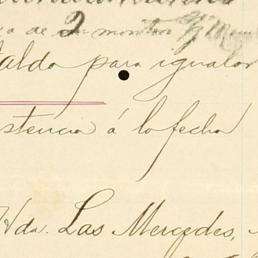 a de 2
aldo para igualar
stencia á la fecha
Hda. Las Mercedes,